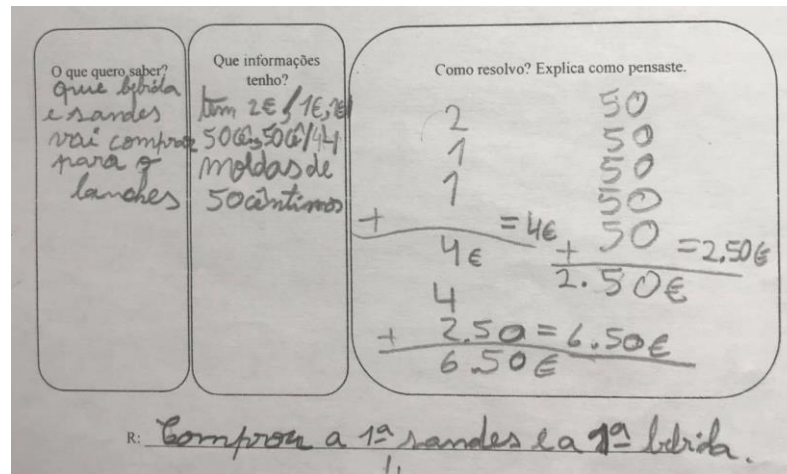 O que quero saber?
que bebida
e sandes
vai comprar
para o
lanches
Que informações
tenho?
tem 2€/1€,1€/
50cê,50cê/44
moldas de
50cêntimos
Como resolvo? Explica como pensaste.
2
1
1
+ = 4€
4€
50
50
50
50
+ 50 = 2,50€
2.50€
4
+ 2.50 = 6.50€
6.50€
R: Comprou a 1ª sandes e a 1ª bebida.